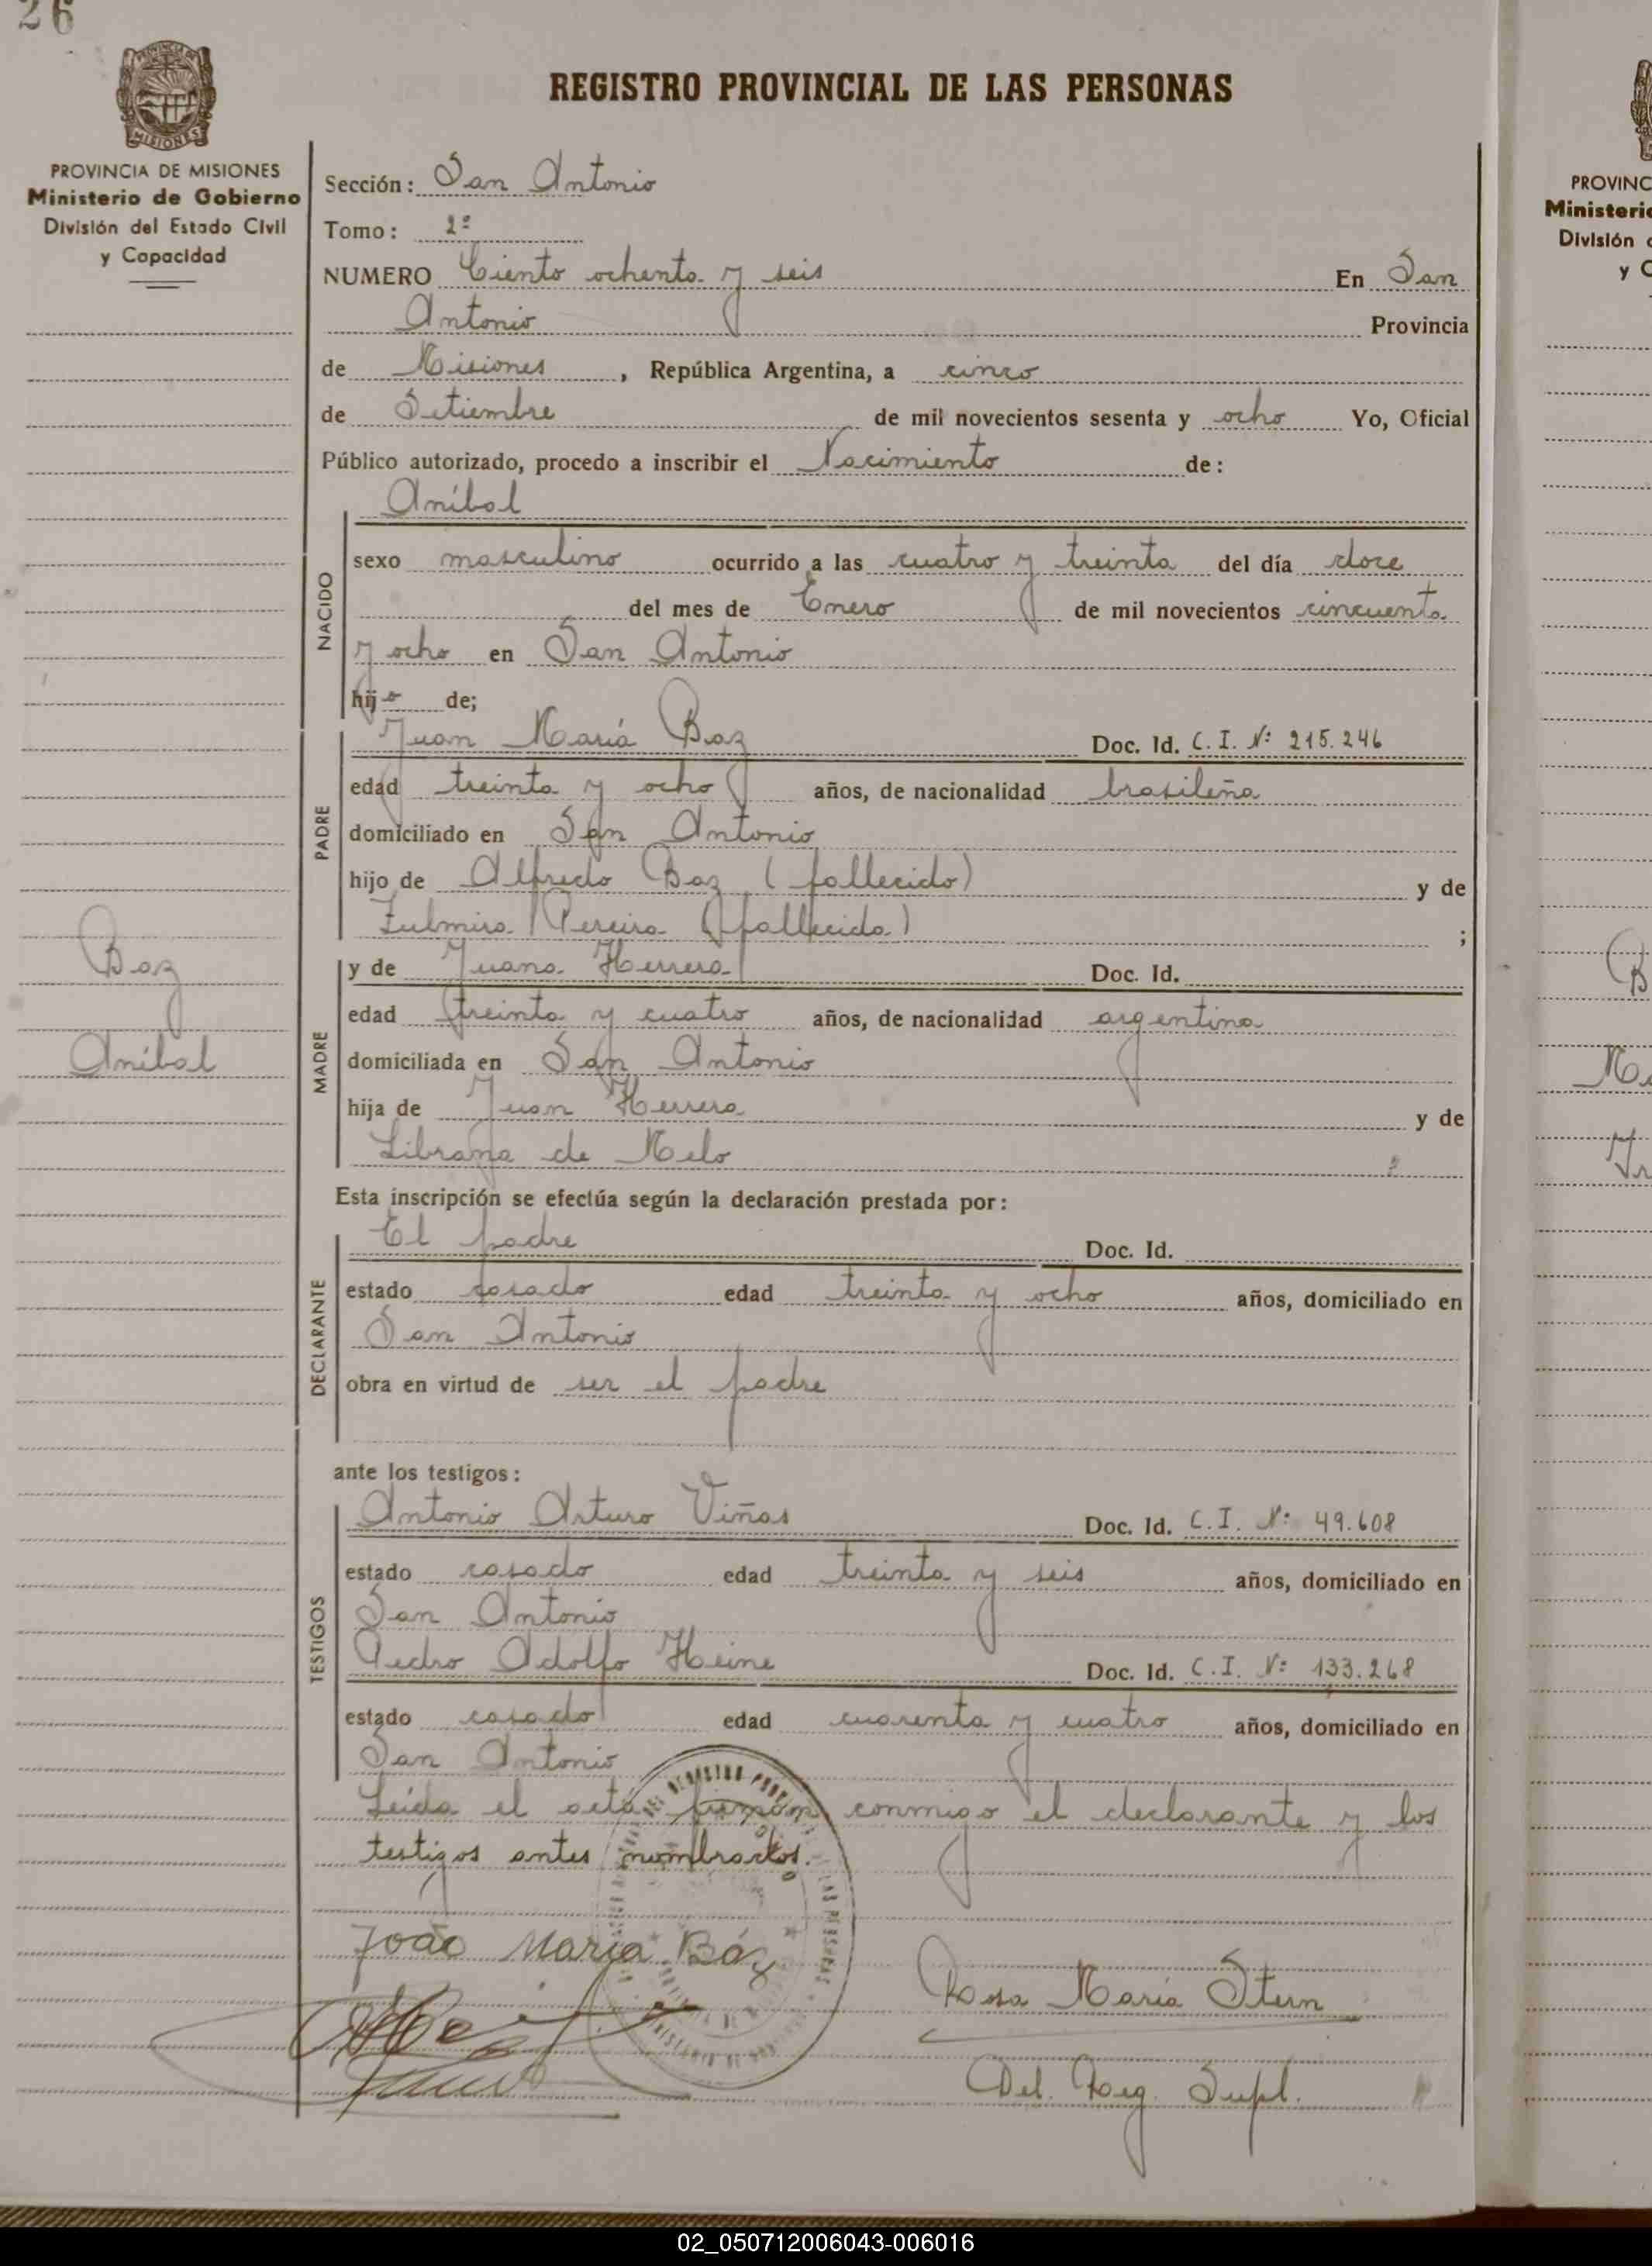 26
PROVINCIA DE MISIONES
Ministerio de Gobierno
División del Estado Civil
y Capacidad
Baz
Aníbal
REGISTRO PROVINCIAL DE LAS PERSONAS
Sección: San Antonio
Tomo: 2º
NUMERO Ciento ochenta y seis En San
Antonio Provincia
de Misiones, República Argentina, a cinco
de Setiembre de mil novecientos sesenta y ocho Yo, Oficial
Público autorizado, procedo a inscribir el Nacimiento de:
NACIDO
Aníbal
sexo masculino ocurrido a las cuatro y treinta del día doce
del mes de Enero de mil novecientos cincuenta
y ocho en San Antonio
hijo de;
PADRE
Juan María Baz Doc. Id. C. I. Nº 215.246
edad treinta y ocho años, de nacionalidad brasileña
domiciliado en San Antonio
hijo de Alfredo Baz (fallecido) y de
Zulmira Pereira (fallecida) ;
MADRE
y de Juana Herrera Doc. Id.
edad treinta y cuatro años, de nacionalidad argentina
domiciliada en San Antonio
hija de Juan Herrera y de
Librana de Melo
Esta inscripción se efectúa según la declaración prestada por:
DECLARANTE
El padre Doc. Id.
estado casado edad treinta y ocho años, domiciliado en
San Antonio
obra en virtud de ser el padre
ante los testigos:
TESTIGOS
Antonio Arturo Viñas Doc. Id. C.I. Nº 49.608
estado casado edad treinta y seis años, domiciliado en
San Antonio
Pedro Adolfo Heine Doc. Id. C.I. Nº 133.268
estado casado edad cuarenta y cuatro años, domiciliado en
San Antonio
Leída el acta firman conmigo el declarante y los
testigos antes nombrados.
João Maria Báz
Rosa María Stern
Del. Reg. Supl.
PROVINC
Ministerio
División
y C
B
Ma
02_050712006043-006016